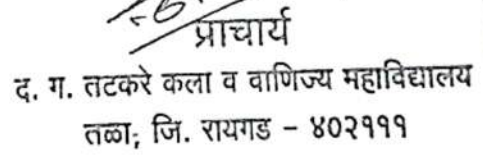 प्राचार्य
द. ग. तटकरे कला व वाणिज्य महाविद्यालय
तळा; जि. रायगड - ४०२१११